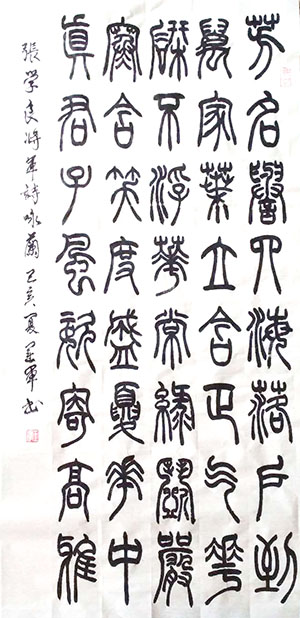 芳名譽四海落戶到
萬家葉立含正气花
不浮華常綠鬥嚴
寒含笑度盛夏華中
真君子風姿寄高雅
張学良將軍詩咏蘭 己亥夏 軍书